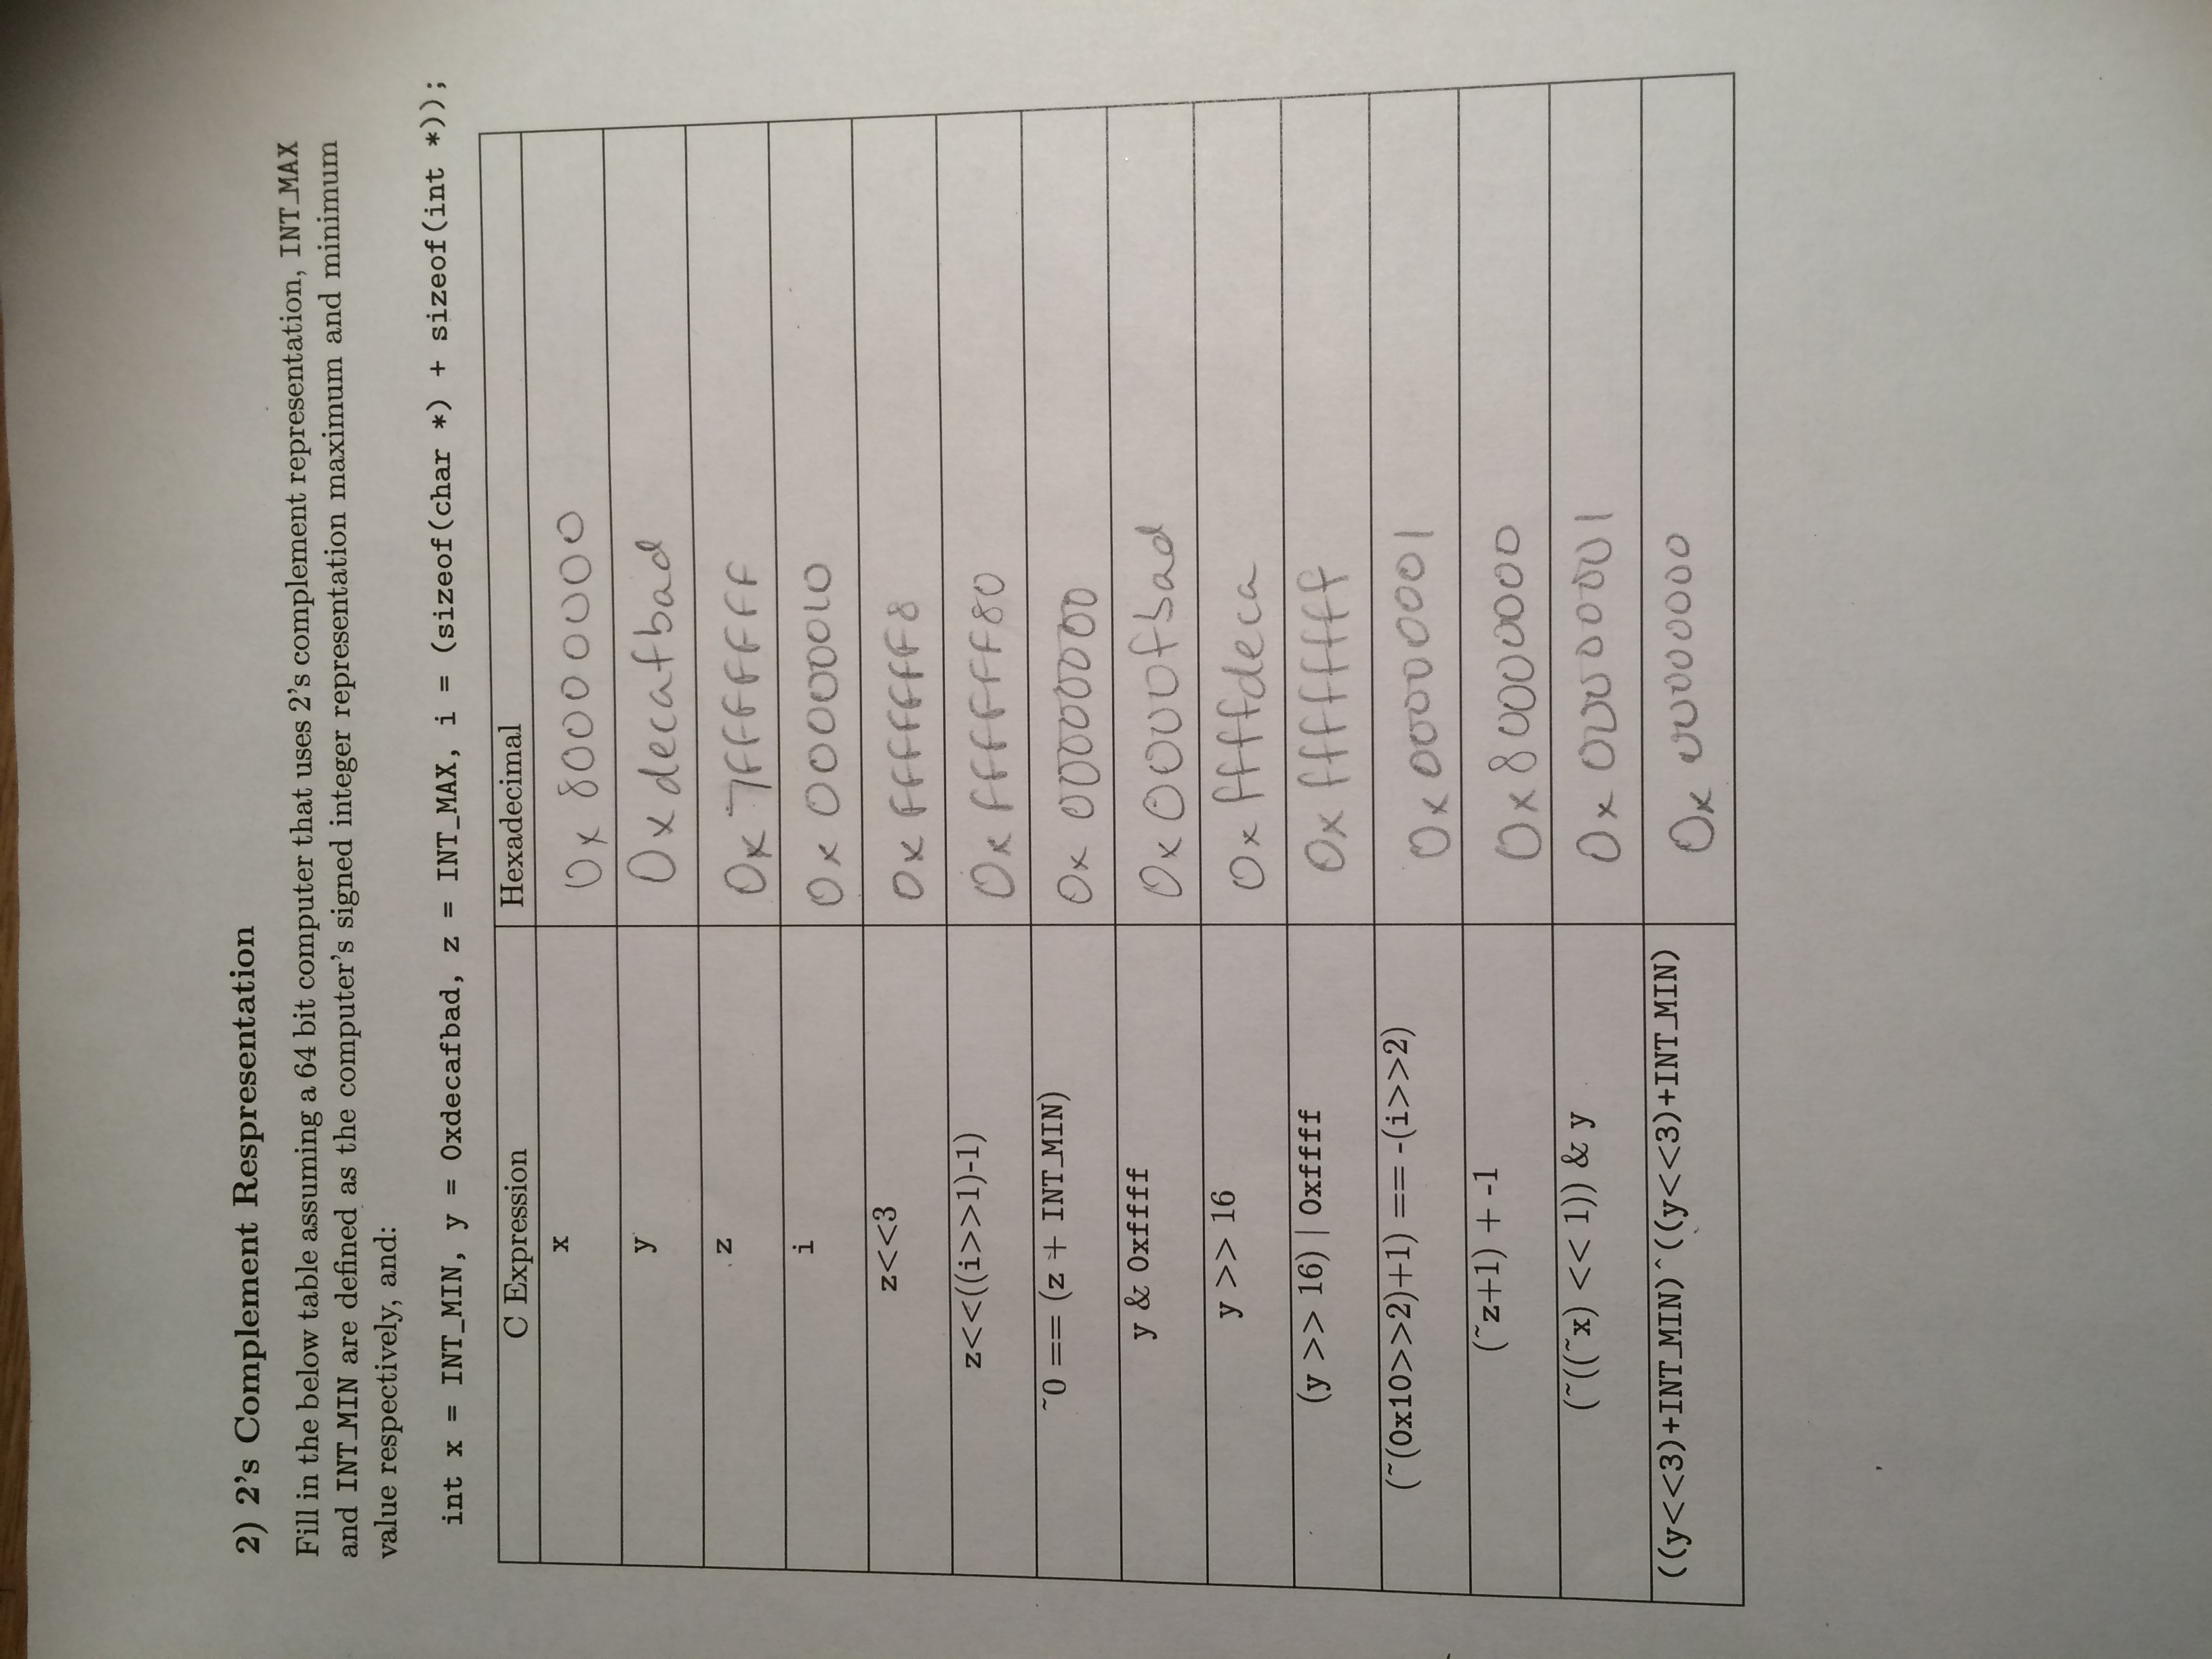 2) 2's Complement Respresentation
Fill in the below table assuming a 64 bit computer that uses 2's complement representation, INT_MAX
and INT_MIN are defined as the computer's signed integer representation maximum and minimum
value respectively, and:
int x = INT_MIN, y = 0xdecafbad, z = INT_MAX, i = (sizeof(char *) + sizeof(int *));
C Expression Hexadecimal
x 0x 80000000
y 0x decafbad
z 0x 7FFFFFFF
i 0x 00000010
z<<3 0x FFFFFFF8
z<<((i>>1)-1) 0x FFFFFF80
~0 == (z + INT_MIN) 0x 00000000
y & 0xffff 0x 0000fbad
y >> 16 0x ffffdeca
(y >> 16) | 0xffff 0x ffffffff
(~(0x10>>2)+1) == -(i>>2) 0x 00000001
(~z+1) + -1 0x 80000000
(~((~x) << 1)) & y 0x 00000001
((y<<3)+INT_MIN)^((y<<3)+INT_MIN) 0x 00000000